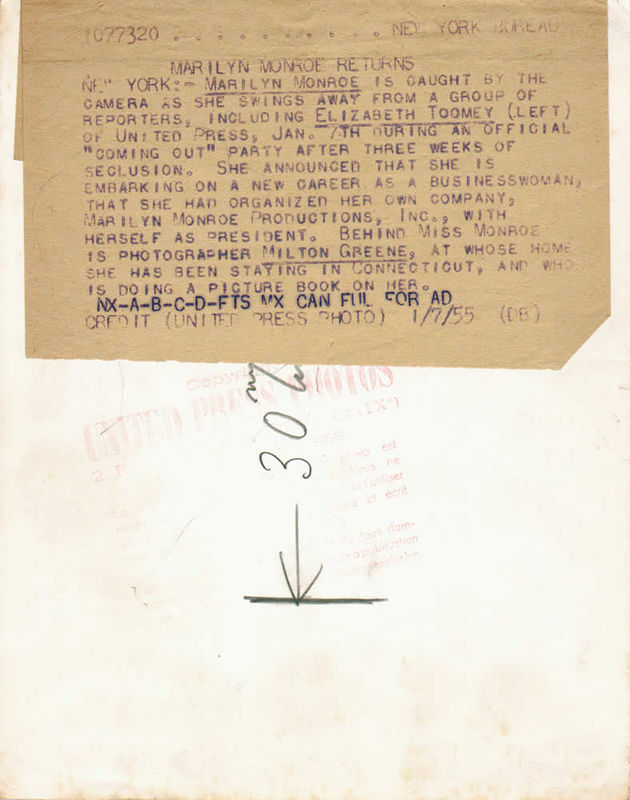 1077320 . . . . . . . . . . . NEW YORK BUREAU
MARILYN MONROE RETURNS
NEW YORK:- MARILYN MONROE IS CAUGHT BY THE
CAMERA AS SHE SWINGS AWAY FROM A GROUP OF
REPORTERS, INCLUDING ELIZABETH TOOMEY (LEFT)
OF UNITED PRESS, JAN. 7TH DURING AN OFFICIAL
"COMING OUT" PARTY AFTER THREE WEEKS OF
SECLUSION. SHE ANNOUNCED THAT SHE IS
EMBARKING ON A NEW CAREER AS A BUSINESSWOMAN,
THAT SHE HAD ORGANIZED HER OWN COMPANY,
MARILYN MONROE PRODUCTIONS, INC., WITH
HERSELF AS PRESIDENT. BEHIND MISS MONROE
IS PHOTOGRAPHER MILTON GREENE, AT WHOSE HOME
SHE HAS BEEN STAYING IN CONNECTICUT, AND WHO
IS DOING A PICTURE BOOK ON HER.
NX-A-B-C-D-FTS MX CAN FUL FOR AD
CREDIT (UNITED PRESS PHOTO) 1/7/55 (DB)
UNITED PRESS PHOTOS
2,
est
30
ne
utiliser
et écrit
tous dom-
publication